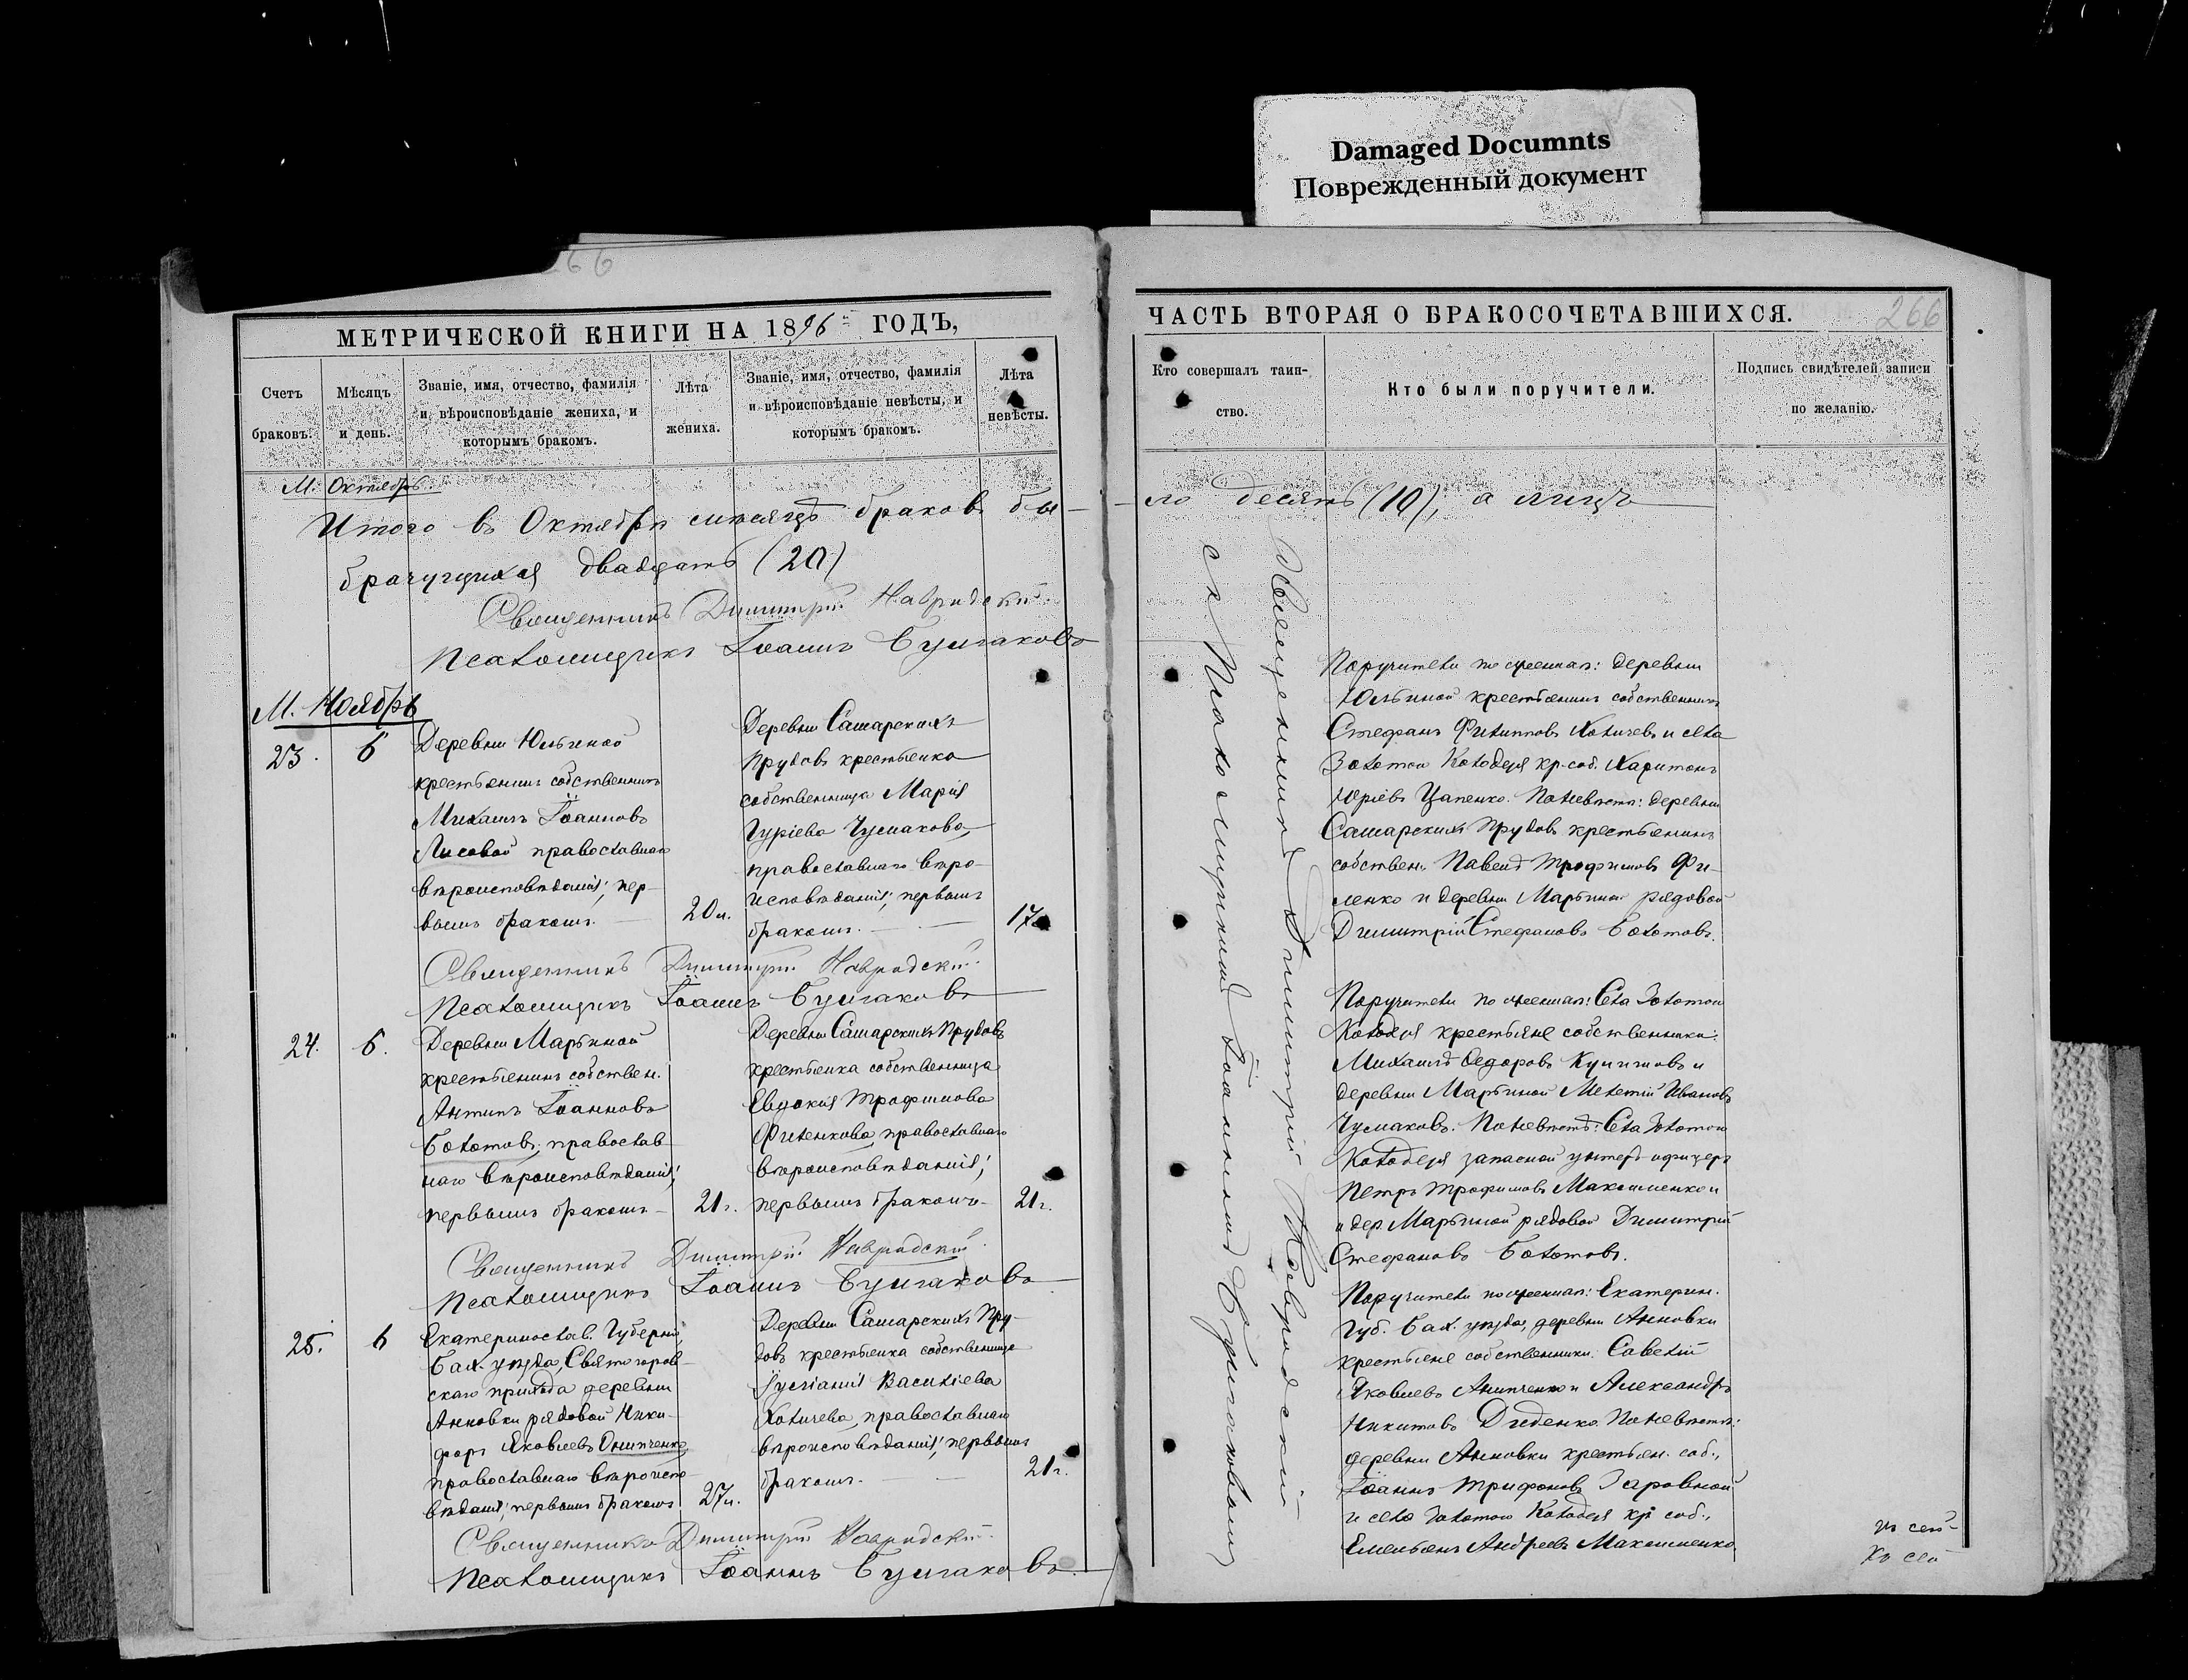 Damaged Documnts
Поврежденный документ
66
МЕТРИЧЕСКОЙ КНИГИ НА 1896 ГОДЪ,
Счетъ браковъ.
Мѣсяцъ и день.
Званіе, имя, отчество, фамилія
и вѣроисповѣданіе жениха, и
которымъ бракомъ.
Лѣта
жениха.
Званіе, имя, отчество, фамилія
и вѣроисповѣданіе невѣсты, и
которымъ бракомъ.
Лѣта
невѣсты.
М. Октябрь.
Итого въ Октябрѣ мѣсяцѣ браковъ бы-
брачущихся двадцать (20)
Священникъ Димитрій Навродскій
Псаломщикъ Іоаннъ Булгаковъ
М. Ноябрь
23. 6
Деревни Юльиной
крестьянинъ собственникъ
Михаилъ Іоанновъ
Лисовой православнаго
вѣроисповѣданія; пер-
вымъ бракомъ.
20 л.
Деревни Самарскихъ
Прудовъ крестьянка
собственница Марія
Гуріева Чумакова,
православнаго вѣро-
исповѣданія; первымъ
бракомъ.
17
Священникъ Димитрій Навродскій
Псаломщикъ Іоаннъ Булгаковъ
24. 6.
Деревни Марьиной
крестьянинъ собствен.
Антипъ Іоанновъ
Болотовъ, православ-
наго вѣроисповѣданія;
первымъ бракомъ
21 г.
Деревни Самарскихъ Прудовъ
крестьянка собственница
Евдокія Трофимова
Филенкова, православнаго
вѣроисповѣданія;
первымъ бракомъ
21 г.
Священникъ Димитрій Навродскій
Псаломщикъ Іоаннъ Булгаковъ
25. 6
Екатеринослав. Губерніи,
Бах. уѣзда, Святогоров-
скаго прихода деревни
Анновки рядовой Ники-
форъ Яковлевъ Онипченко
православнаго вѣроиспо-
вѣданія; первымъ бракомъ
27 л.
Деревни Самарскихъ Пру-
довъ крестьянка собственница
Іуліанія Василіева
Холичева, православнаго
вѣроисповѣданія; первымъ
бракомъ.
21 г.
Священникъ Димитрій Навродскій
Псаломщикъ Іоаннъ Булгаковъ
ЧАСТЬ ВТОРАЯ О БРАКОСОЧЕТАВШИХСЯ.
266
Кто совершалъ таин-
ство.
Кто были поручители.
Подпись свидѣтелей записи
по желанію.
ло десять (10); а лицъ
Священникъ Димитрій Навродскій
съ Псаломщикомъ Іоанномъ Булгаковымъ
Поручители по женихѣ: деревни
Юльиной крестьянинъ собственникъ
Стефанъ Филипповъ Холичевъ и села
Золотого Колодезя кр. соб. Харитонъ
Юріевъ Цапенко. По невѣстѣ: деревни
Самарскихъ Прудовъ крестьянинъ
собствен. Павелъ Трофимовъ Фи-
ленко и деревни Марьиной рядовой
Димитрій Стефановъ Болотовъ.
Поручители по женихѣ: Села Золотого
Колодезя крестьяне собственники:
Михаилъ Федоровъ и
деревни Марьиной Мелетій Ивановъ
Чумаковъ. По невѣстѣ: Села Золотого
Колодезя запасной унтеръ офицеръ
Петръ Трофимовъ Максименко и
и дер. Марьиной рядовой Димитрій
Стефановъ Болотовъ.
Поручители по женихѣ: Екатерин.
Губ. Бах. уѣзда, деревни Анновки
крестьяне собственники: Савелій
Яковлевъ Анипченко и Александръ
Никитовъ Диденко. По невѣстѣ:
деревни Анновки крестьян. соб.,
Іоаннъ Трифоновъ Заровной
и села Золотого Колодезя кр. соб.,
Емельянъ Андреевъ Максименко